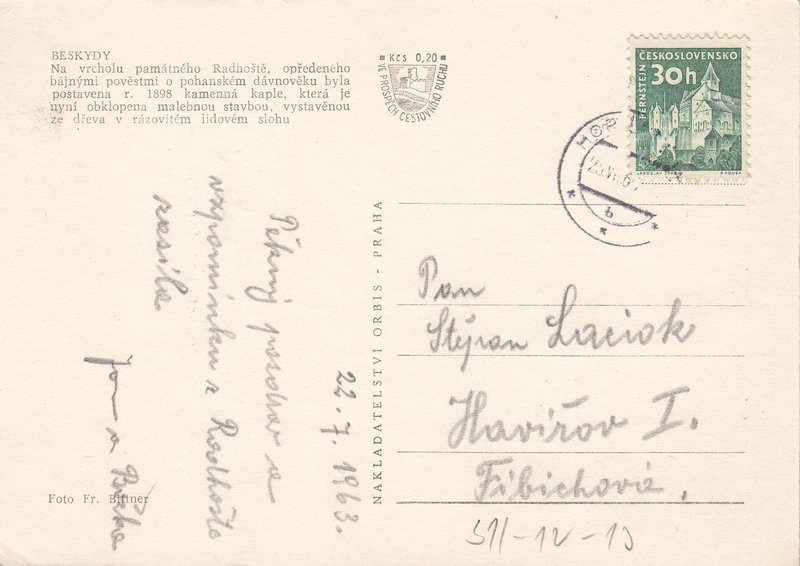 BESKYDY
Na vrcholu památného Radhoště, opředeného
bájnými pověstmi o pohanském dávnověku byla
postavena r. 1898 kamenná kaple, která je
nyní obklopena malebnou stavbou, vystavěnou
ze dřeva v rázovitém lidovém slohu
Kčs 0,20
VE PROSPĚCH CESTOVNÍHO RUCHU
ČESKOSLOVENSKO
30h
PERNŠTEJN
22.7.1963.
Pěkný pozdrav a
vzpomínku z Radhoště
zasílá
a
NAKLADATELSTVÍ ORBIS - PRAHA
Pan
Štýpan Laciok
Havířov I.
Fibichová,
511-12-13
Foto Fr. Bittner